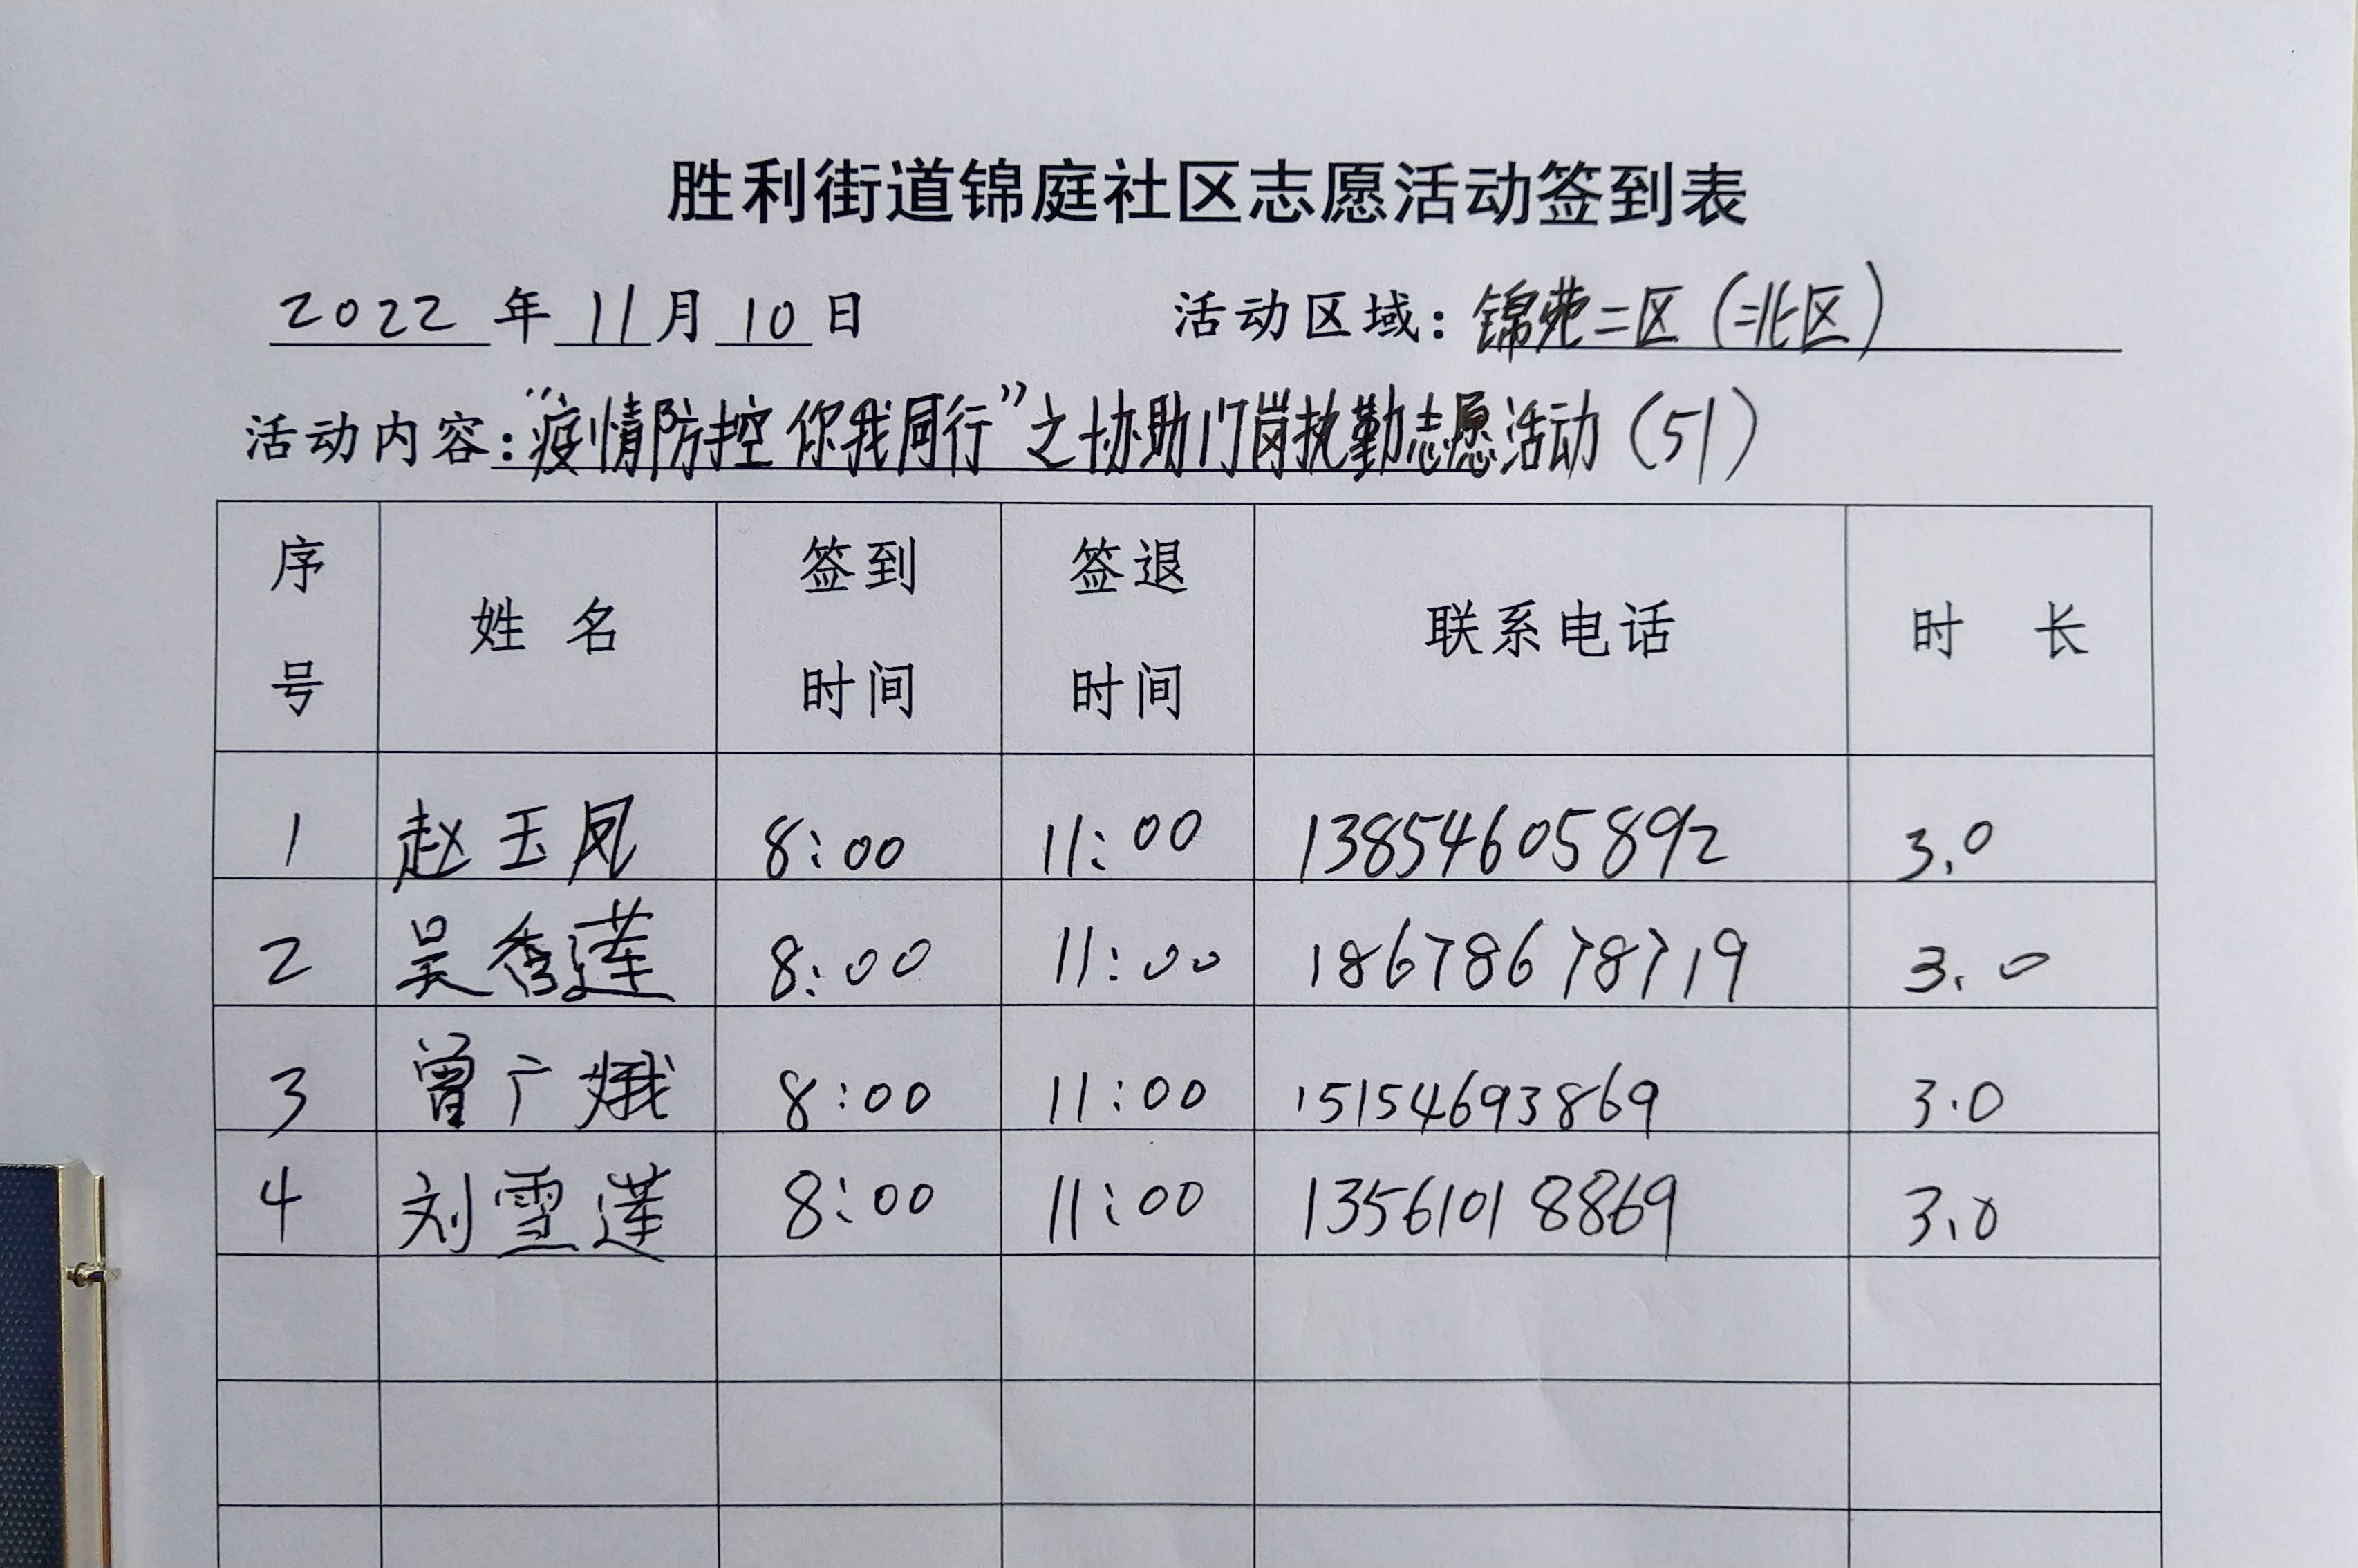 胜利街道锦庭社区志愿活动签到表
2022 年 11 月 10 日 活动区域：锦苑二区（北区）
活动内容：“疫情防控 你我同行”之协助门岗执勤志愿活动（51）
序号 姓名 签到时间 签退时间 联系电话 时长
1 赵玉凤 8:00 11:00 13854605892 3.0
2 吴秀莲 8:00 11:00 18678678719 3.0
3 曾广娥 8:00 11:00 15154693869 3.0
4 刘雪莲 8:00 11:00 13561018869 3.0